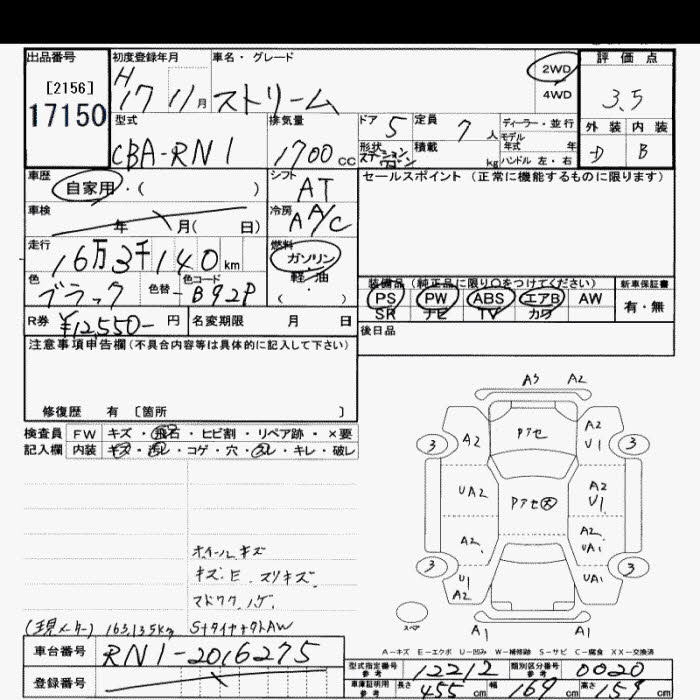 出品番号
[2156]
17150
初度登録年月
H17 11月
車名・グレード
ストリーム
2WD
4WD
評価点
3.5
外装 内装
D B
型式
CBA-RN1
排気量
1700cc
ドア 5
定員 7人
ディーラー・並行
モデル年式 年
形状 ステーションワゴン
積載 kg
ハンドル 左・右
車歴
自家用・( )
シフト AT
セールスポイント (正常に機能するものに限ります)
車検
年 月( 日)
冷房 A A/C
走行
16万3千140km
燃料
ガソリン
軽・油
( )
色 ブラック
色替
色コード B92P
装備品(純正品に限り○をつけてください)
新車保証書
PS PW ABS エアB AW
SR ナビ TV カワ
有・無
R券 ¥12,550- 円
名変期限 月 日
後日品
注意事項申告欄(不具合内容等は具体的に記入して下さい)
修復歴 有 〔箇所 〕
検査員 FW キズ・飛石・ヒビ割・リペア跡・×要
記入欄 内装 キズ・汚レ・コゲ・穴・スレ・キレ・破レ
A3 A2
3 A2 Pアセ A2 U1 3
UA2 Pアセ大 A2 U1
A2 A2 UA1
3 U1 A2 UA1 3
スペア
A1 A1
ホイールキズ
キズ・E スリキズ
マドワクハゲ
(現メーター) 163,135kg SタイヤナットAW
A-キズ E-エクボ U-凹み W-補修跡 S-サビ C-腐食 XX-交換済
車台番号 RN1-2016275
登録番号
型式指定番号 参考 12212
類別区分番号 参考 0020
車庫証明用 参考 長さ 455cm 幅 169cm 高さ 159cm